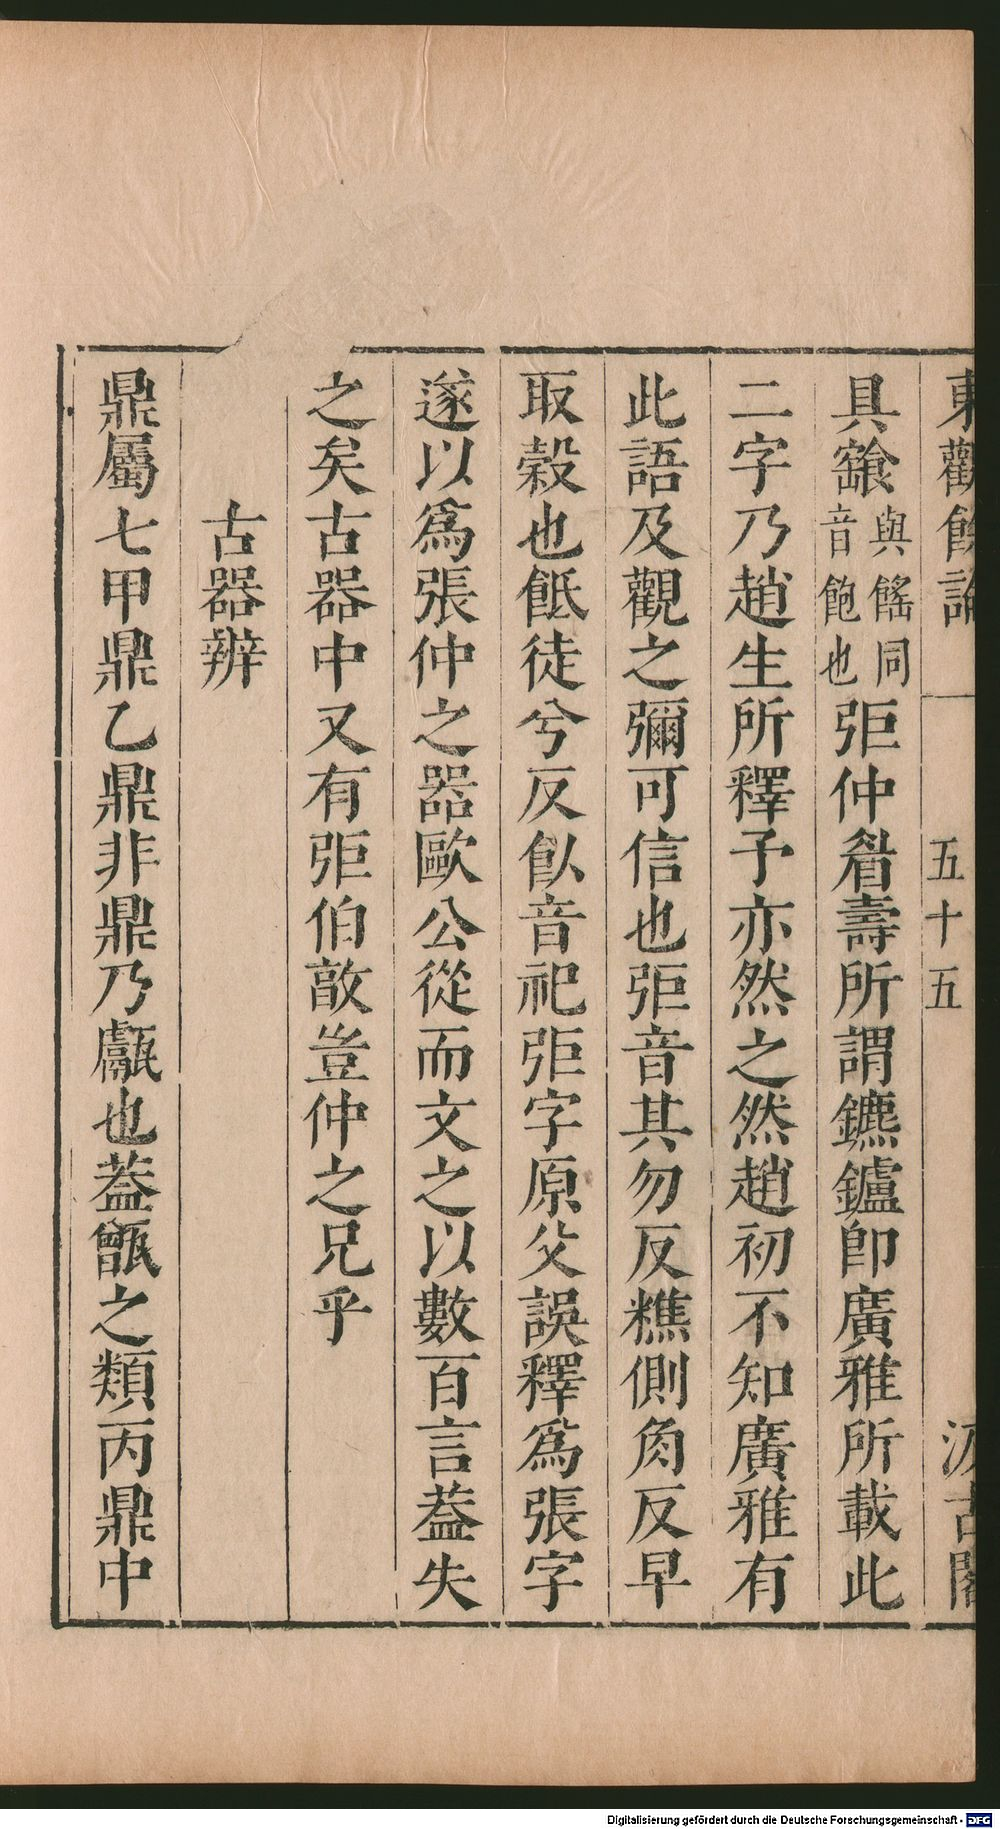 東觀餘論 五十五 汲古閣
具䭃與餚同音飽也弡仲眉壽所謂鑣鑪卽廣雅所載此
二字乃趙生所釋予亦然之然趙初不知廣雅有
此語及觀之彌可信也弡音其勿反穛側角反早
取糓也䬫徒兮反飤音祀弡字原父誤釋爲張字
遂以爲張仲之器歐公從而文之以數百言葢失
之矣古器中又有弡伯敦豈仲之兄乎
古器辨
鼎屬七甲鼎乙鼎非鼎乃甗也葢甑之類丙鼎中
Digitalisierung gefördert durch die Deutsche Forschungsgemeinschaft - DFG